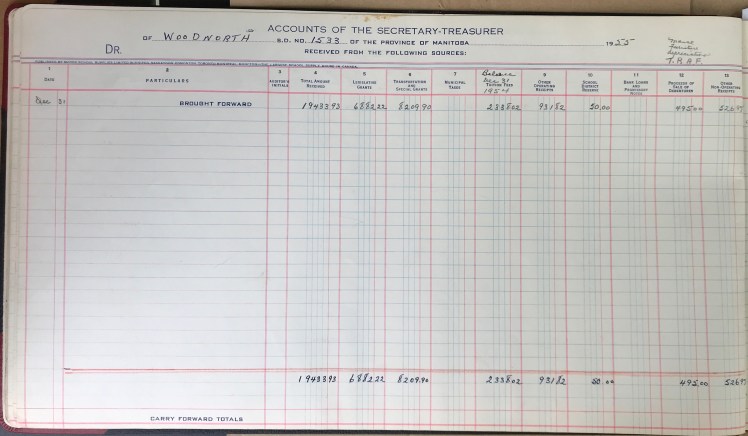 ACCOUNTS OF THE SECRETARY-TREASURER
OF WOODNORTH S.D. NO. 1533 OF THE PROVINCE OF MANITOBA 1955
DR. RECEIVED FROM THE FOLLOWING SOURCES:
T.R.A.F.
1 2 3 4 5 6 7 9 10 11 12 13
DATE PARTICULARS AUDITOR'S INITIALS TOTAL AMOUNT RECEIVED LEGISLATIVE GRANTS TRANSPORTATION AND SPECIAL GRANTS MUNICIPAL TAXES Balance Dec 31 1954 TUITION FEES OTHER OPERATING RECEIPTS SCHOOL DISTRICT RESERVE BANK LOANS AND PROMISSORY NOTES PROCEEDS OF SALE OF DEBENTURES OTHER NON-OPERATING RECEIPTS
Dec 31 BROUGHT FORWARD 19433 93 6882.22 8209.90 2338 02 931 82 50.00 495.00
19433 93 6882.22 8209.90 2338 02 931 82 50.00 495.00
CARRY FORWARD TOTALS